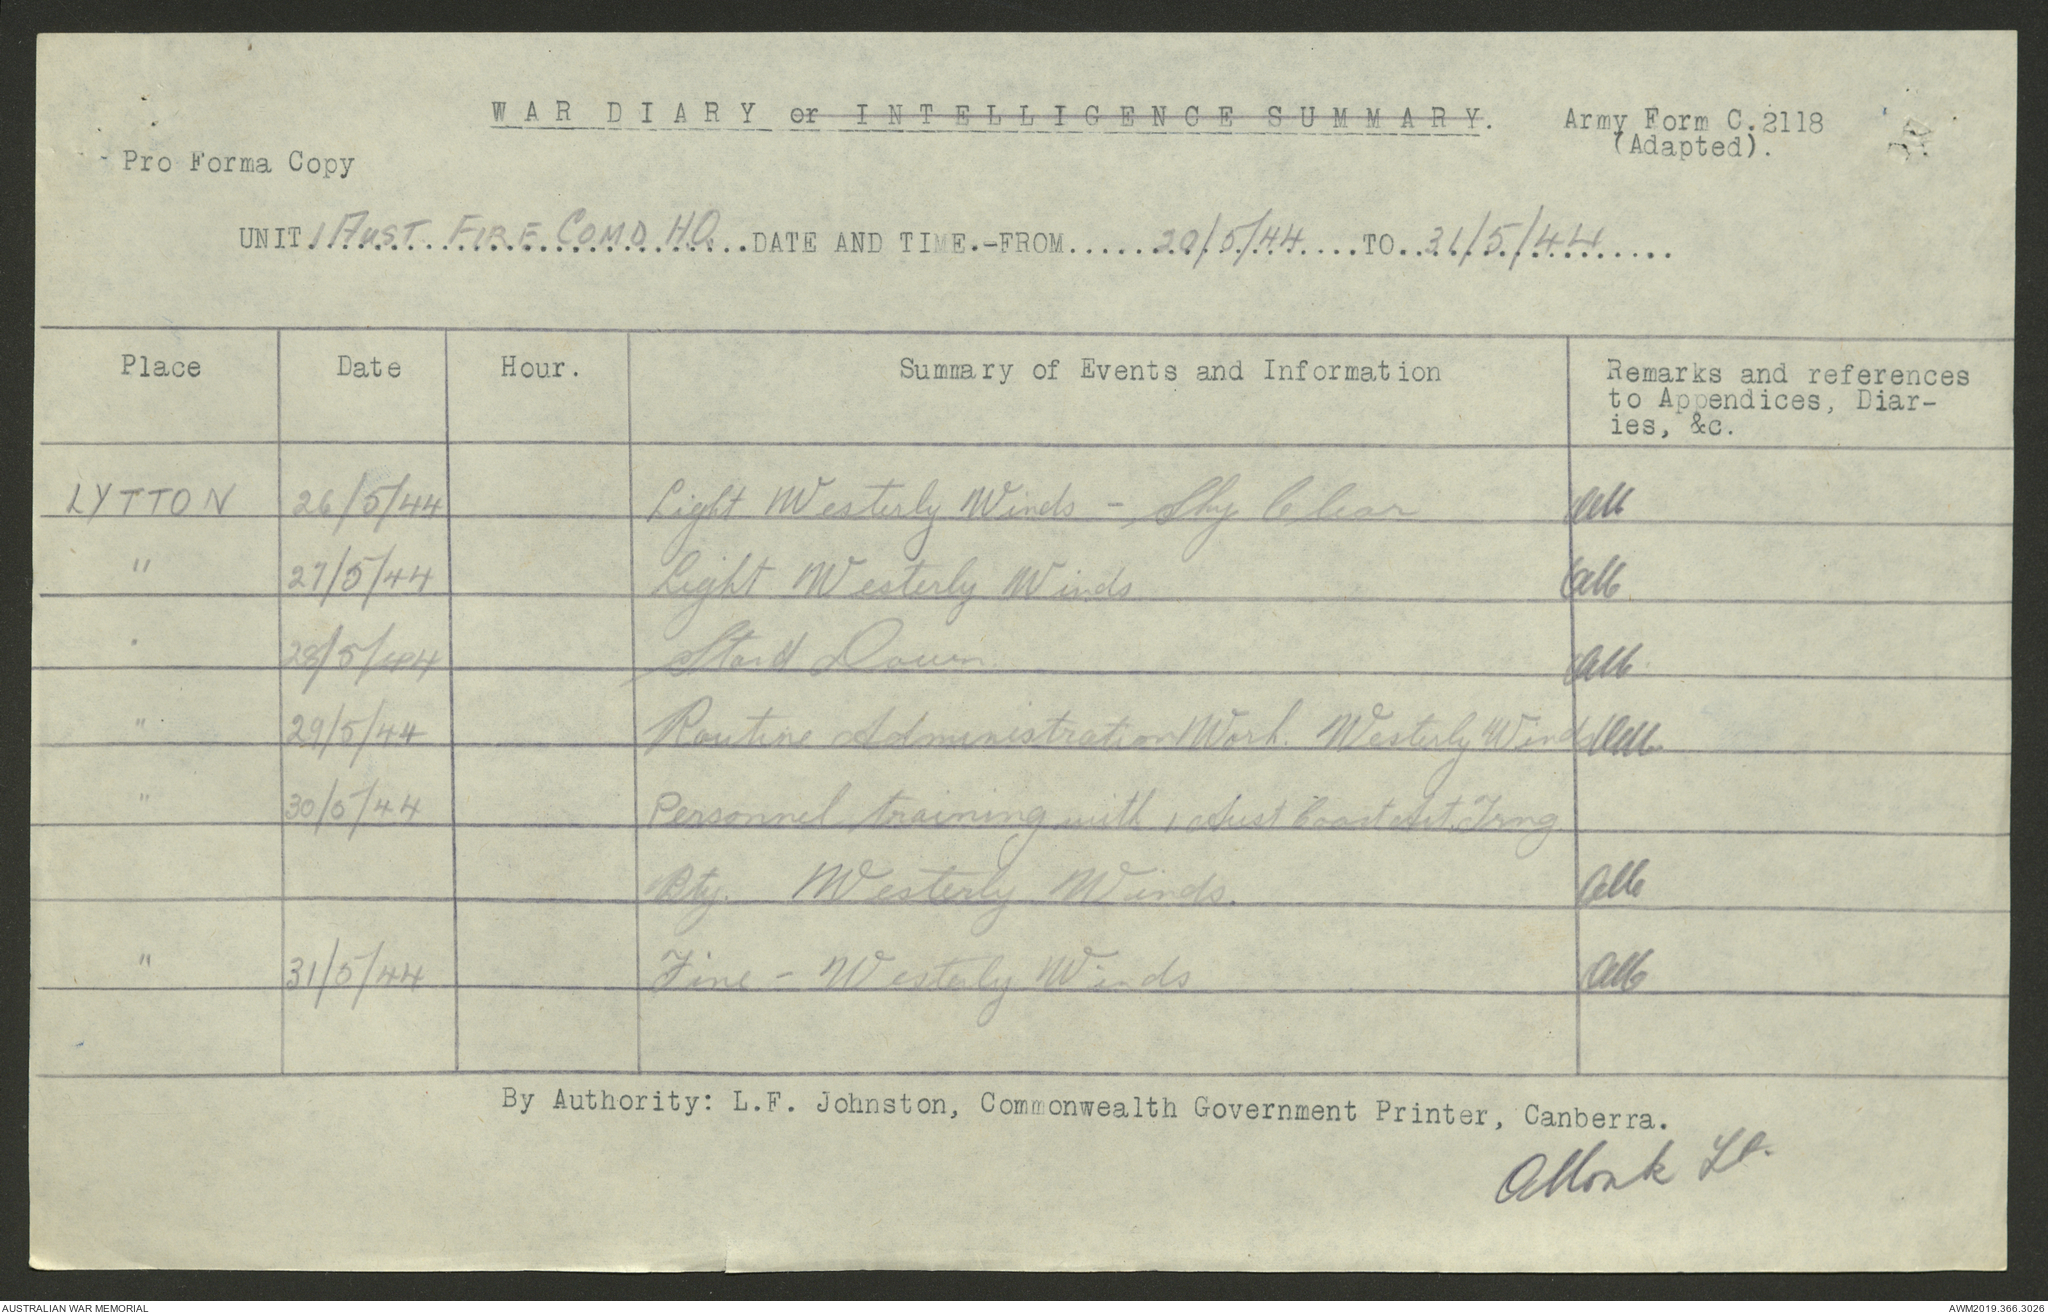 WAR DIARY or INTELLIGENCE SUMMARY.
Army Form C.2118
(Adapted).
Pro Forma Copy
UNIT 1 AUST FIRE COMD HQ. DATE AND TIME.-FROM 20/5/44 TO 31/5/44
Place Date Hour. Summary of Events and Information Remarks and references
to Appendices, Diar-
ies, &c.
LYTTON 26/5/44 Light Westerly Winds - Sky Clear AM
" 27/5/44 Light Westerly Winds AM
" 28/5/44 Stand Down AM
" 29/5/44 Routine Administration Work. Westerly Winds AM
" 30/5/44 Personnel training with 1 Aust Coast Art. Trng
Bty. Westerly Winds. AM
" 31/5/44 Fine - Westerly Winds AM
By Authority: L.F. Johnston, Commonwealth Government Printer, Canberra.
AMonk Lt.
AUSTRALIAN WAR MEMORIAL
AWM2019.366.3026